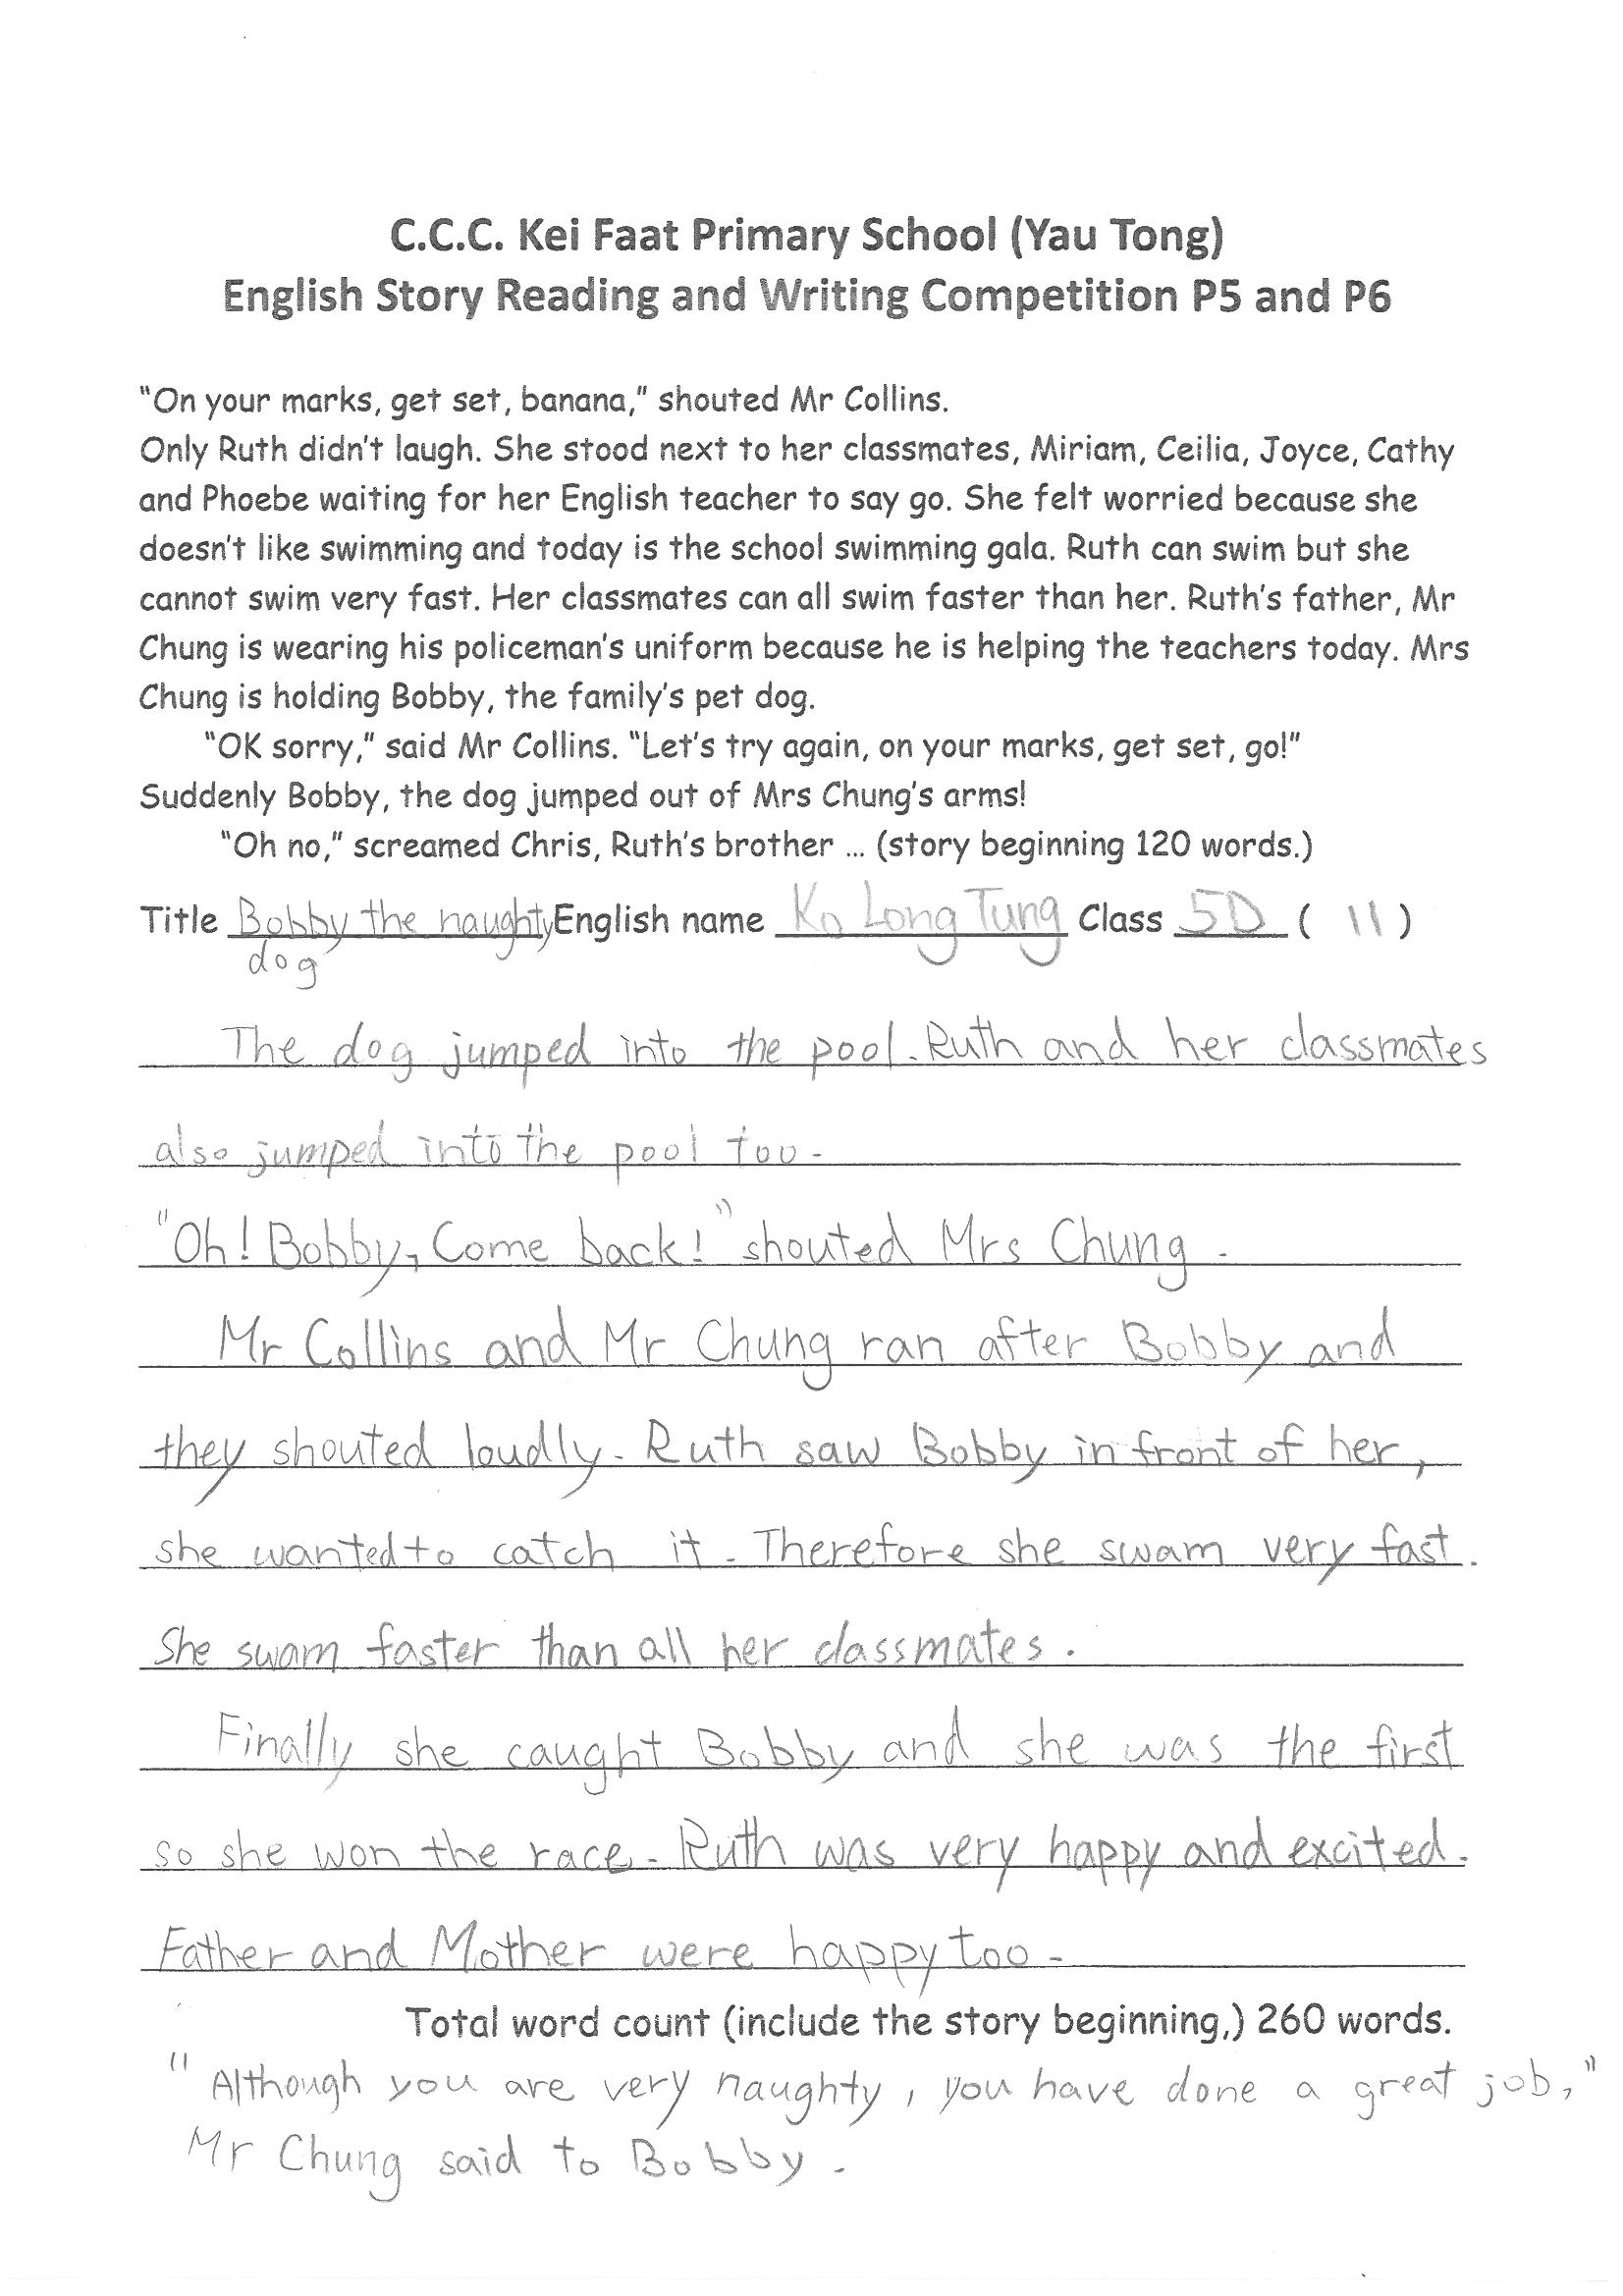 C.C.C. Kei Faat Primary School (Yau Tong)
English Story Reading and Writing Competition P5 and P6
"On your marks, get set, banana," shouted Mr Collins.
Only Ruth didn't laugh. She stood next to her classmates, Miriam, Ceilia, Joyce, Cathy
and Phoebe waiting for her English teacher to say go. She felt worried because she
doesn't like swimming and today is the school swimming gala. Ruth can swim but she
cannot swim very fast. Her classmates can all swim faster than her. Ruth's father, Mr
Chung is wearing his policeman's uniform because he is helping the teachers today. Mrs
Chung is holding Bobby, the family's pet dog.
"OK sorry," said Mr Collins. "Let's try again, on your marks, get set, go!"
Suddenly Bobby, the dog jumped out of Mrs Chung's arms!
"Oh no," screamed Chris, Ruth's brother ... (story beginning 120 words.)
Title Bobby the naughty English name Ko Long Tung Class 5D ( 11 )
dog
The dog jumped into the pool. Ruth and her classmates
also jumped into the pool too.
"Oh! Bobby, Come back!" shouted Mrs Chung.
Mr Collins and Mr Chung ran after Bobby and
they shouted loudly. Ruth saw Bobby in front of her,
she wanted to catch it. Therefore she swam very fast.
She swam faster than all her classmates.
Finally she caught Bobby and she was the first
so she won the race. Ruth was very happy and excited.
Father and Mother were happy too.
Total word count (include the story beginning,) 260 words.
"Although you are very naughty, you have done a great job,"
Mr Chung said to Bobby.